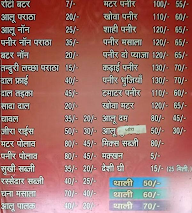 रोटी बटर 7/- मटर पनीर 100/- 55/-
आलू पराठा 20/- खोवा पनीर 110/- 60/-
आलू नॉन 25/- शाही पनीर 120/- 65/-
पनीर नॉन पराठा 35/- पनीर मसाला 120/- 65/-
बटर नॉन 20/- पनीर दो प्याजा 120/- 65/-
तन्दुरी लच्छा पराठा 15/- कड़ाई पनीर 130/- 70/-
दाल फ्राई 40/- पनीर भुजिया 130/- 70/-
दाल तड़का 45/- टमाटर पनीर 110/- 60/-
सादा दाल 20/- खोवा मटर 120/- 65/-
चावल 35/- 20/- आलू दम 80/- 45/-
जीरा राईस 50/- 30/- आलू 50/- 30/-
मटर पोलाव 80/- 45/- मिक्स सब्जी 80/-
पनीर पोलाव 80/- 45/- मक्खन 5/-
सुखी सब्जी 35/- 20/- देशी घी 15/-
रसेदार सब्जी 40/- 25/- थाली 50/-
चना मसाला 70/- 40/- थाली 60/-
आलू पालक 40/- 20/- थाली 70/-